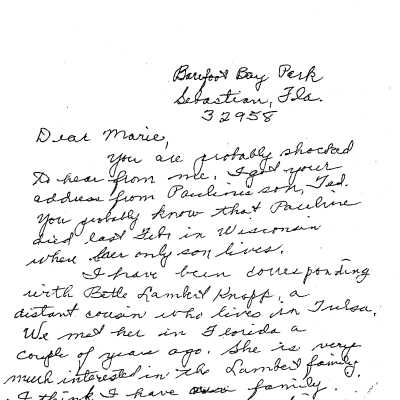 Barefoot Bay Park
Sebastian, Fla.
32958
Dear Marie,
You are probably shocked
to hear from me. I got your
address from Pauline's son, Ted.
You probably know that Pauline
died last Feb. in Wisconsin
where her only son lives.
I have been corresponding
with Bette Lambert Knapp, a
distant cousin who lives in Tulsa.
We met her in Florida a
couple of years ago. She is very
much interested in the Lambert family.
I think I have family.